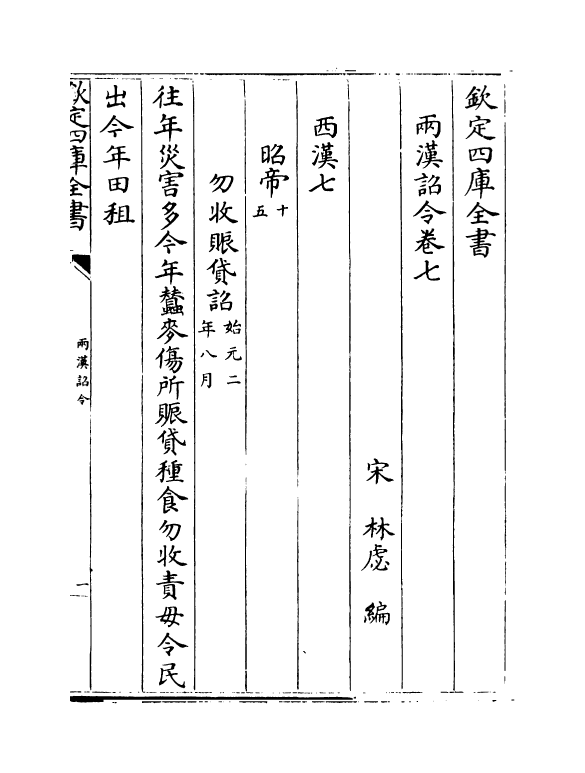 欽定四庫全書
兩漢詔令卷七
宋 林虙 編
西漢七
昭帝十五
勿收賑貸詔始元二年八月
往年災害多今年蠶麥傷所賑貸種食勿收責毋令民
出今年田租
欽定四庫全書
兩漢詔令
一